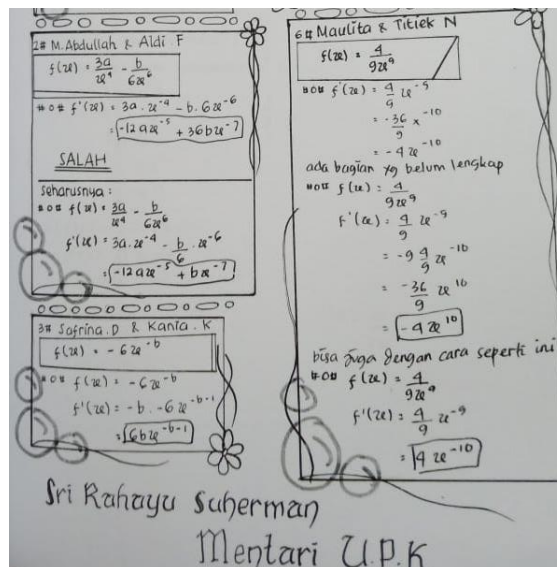 2# M.Abdullah & Aldi F
f(x) = 3a/x⁴ - b/6x⁶
#0# f'(x) = 3a.x⁻⁴ - b.6x⁻⁶
= -12ax⁻⁵ + 36bx⁻⁷
SALAH
Seharusnya:
#0# f(x) = 3a/x⁴ - b/6x⁶
f'(x) = 3a.x⁻⁴ - b/6.x⁻⁶
= -12ax⁻⁵ + bx⁻⁷
3# Safrina.D & Kania.K
f(x) = -6x⁻ᵇ
#0# f(x) = -6x⁻ᵇ
f'(x) = -b.-6x⁻ᵇ⁻¹
= 6bx⁻ᵇ⁻¹
6# Maulita & Titiek N
f(x) = 4/9x⁹
#0# f'(x) = 4/9 x⁻⁹
= -36/9 x⁻¹⁰
= -4x⁻¹⁰
ada bagian yg belum lengkap
#0# f(x) = 4/9x⁹
f'(x) = 4/9 x⁻⁹
= -9 4/9 x⁻¹⁰
= -36/9 x¹⁰
= -4x¹⁰
bisa juga dengan cara seperti ini
#0# f(x) = 4/9x⁹
f'(x) = 4/9 x⁻⁹
= 4x⁻¹⁰
Sri Rahayu Suherman
Mentari U.P.K